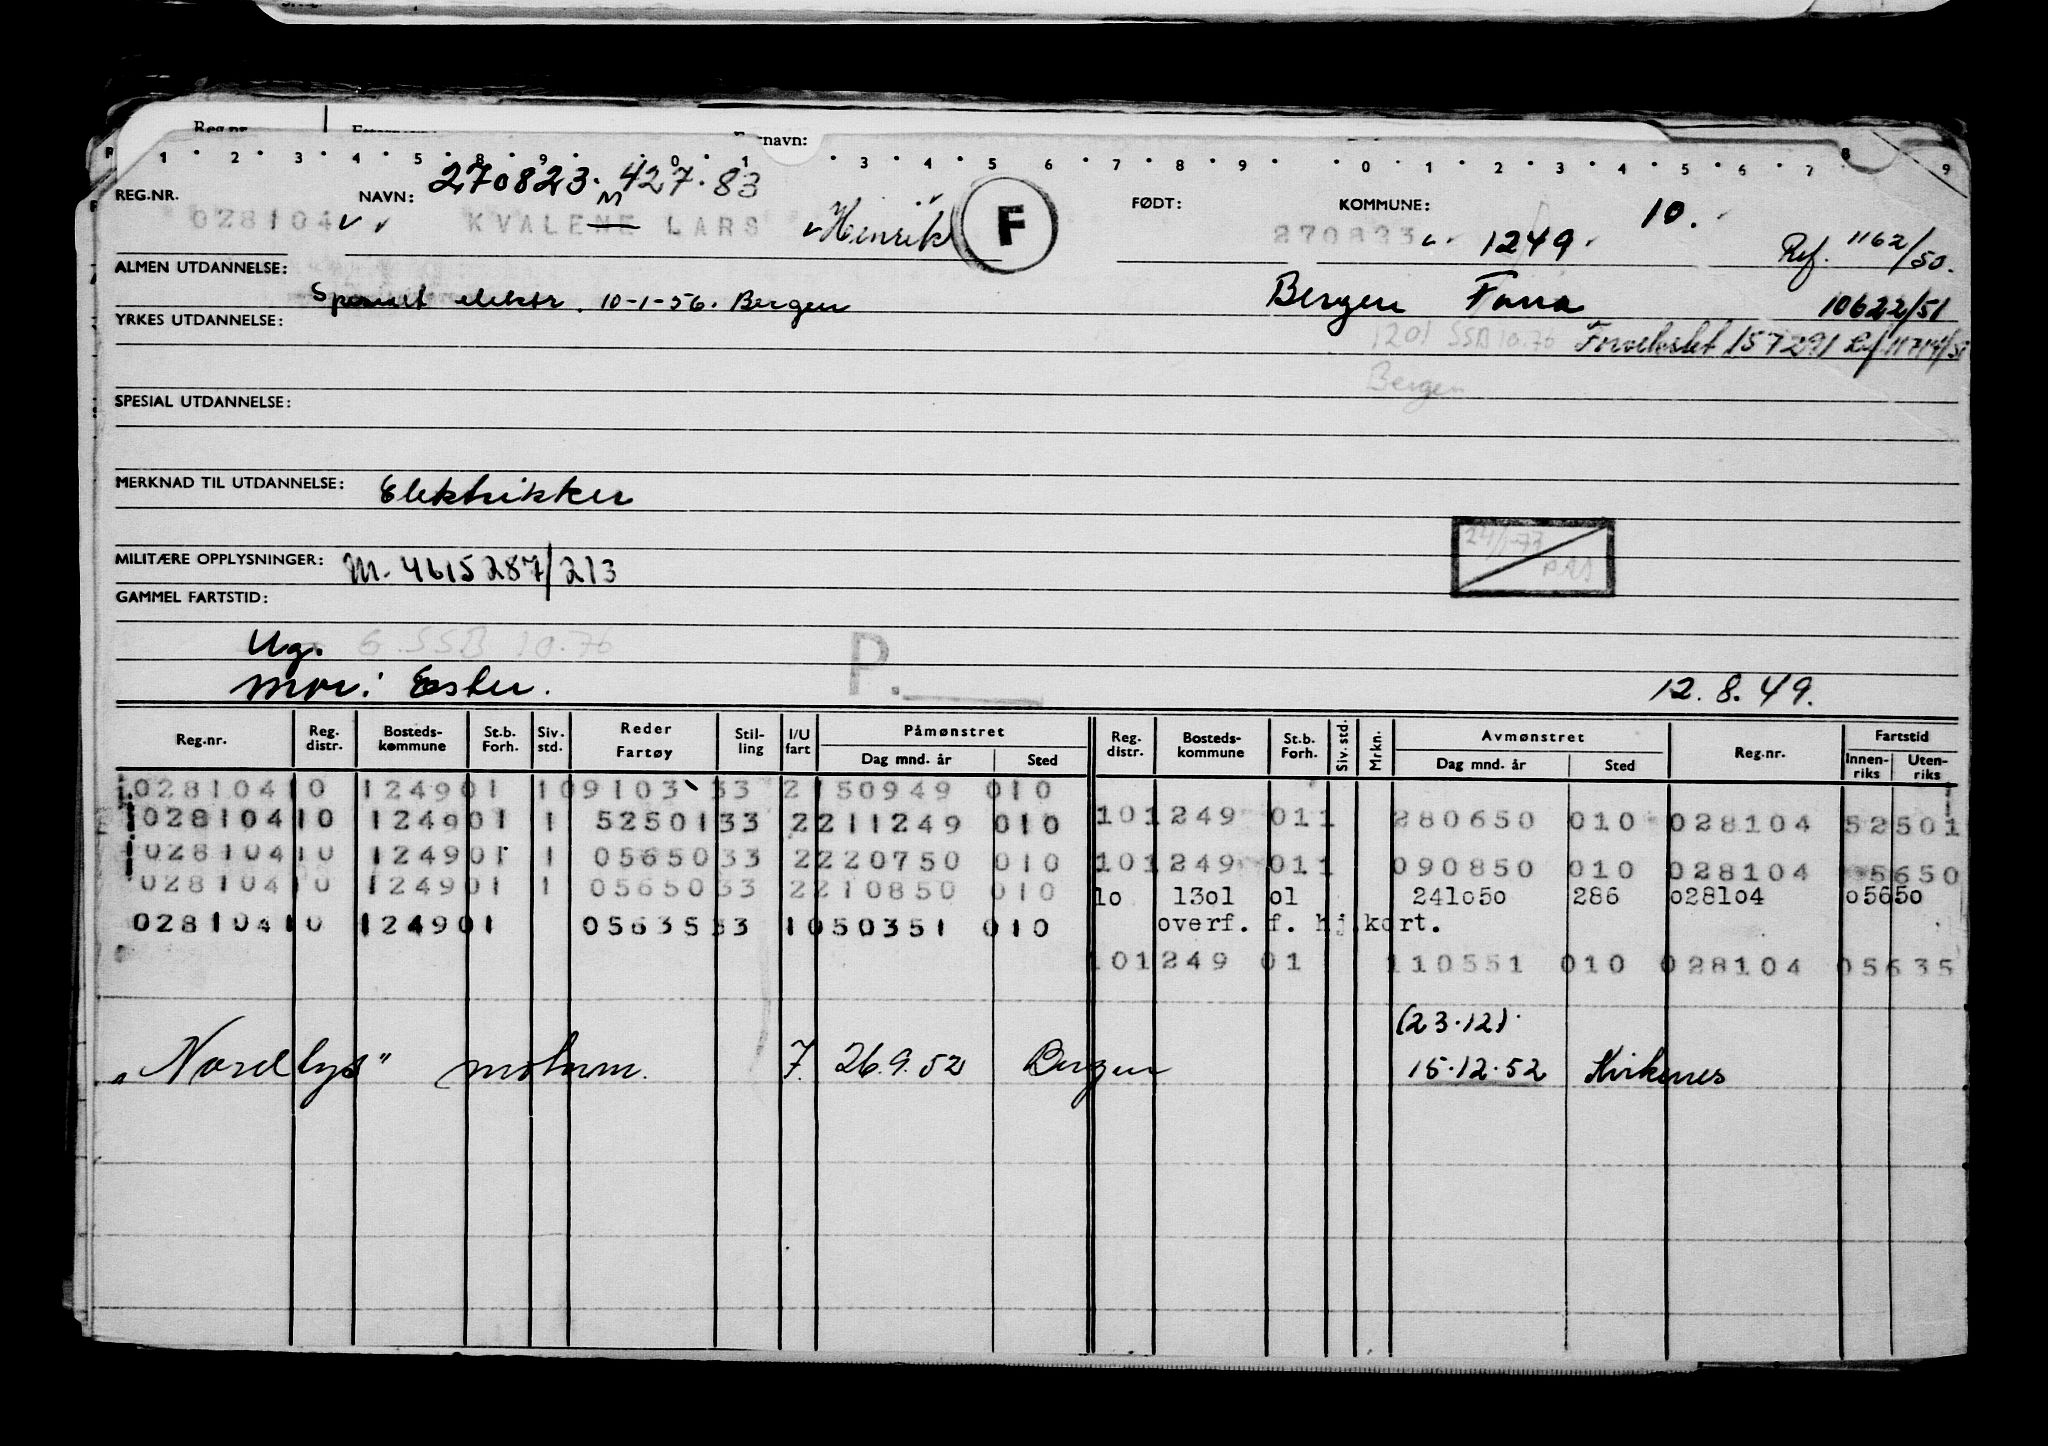 Reg.nr. navn:
1 2 3 4 5 8 9 0 1 3 4 5 6 7 8 9 0 1 2 3 4 5 6 7 8 9
270823. 427.83
REG.NR. NAVN: FØDT: KOMMUNE:
028104 KVALENE M LARS Henrik F 270823 1249 10. Ref. 1162/50.
ALMEN UTDANNELSE:
elektr. 10-1-56. Bergen Bergen Fana 10622/51
YRKES UTDANNELSE:
1201 SSB 10.76 157291 Ref.
Bergen
SPESIAL UTDANNELSE:
MERKNAD TIL UTDANNELSE: Elektrikker
24/1-73
MILITÆRE OPPLYSNINGER: M. 4615287/213
GAMMEL FARTSTID:
Ug. G. SSB 10.76 P.
mor: Ester. 12.8.49.
Reg.nr. Reg. distr. Bosteds-kommune St.b. Forh. Siv. std. Reder Fartøy Stil-ling I/U fart Påmønstret Dag mnd. år Sted Reg. distr. Bosteds-kommune St.b. Forh. Siv. std. Mrkn. Avmønstret Dag mnd. år Sted Reg.nr. Fartstid Innen-riks Uten-riks
028104 10 1249 01 1 09103 33 2 150949 010
028104 10 1249 01 1 52501 33 2 211249 010 10 1249 01 1 280650 010 028104 52501
028104 10 1249 01 1 05650 33 2 220750 010 10 1249 01 1 090850 010 028104 05650
028104 10 1249 01 1 05650 33 2 210850 010 10 1301 01 241050 286 028104 05650
028104 10 1249 01 05635 33 1 050351 010 overf. f. hj.kort.
10 1249 01 110551 010 028104 05635
(23.12).
"Nordlys" motorm. 7. 26.9.52 Bergen 15.12.52 Kirkenes